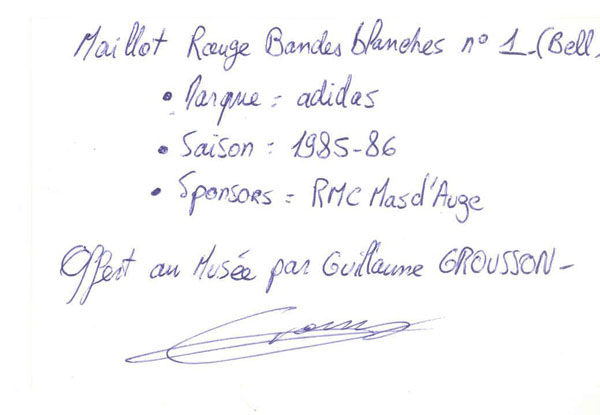 Maillot Rouge Bandes blanches n° 1 - (Bell
• Marque = adidas
• Saison = 1985-86
• Sponsors = RMC Mas d'Auge
Offert au Musée par Guillaume GROUSSON -